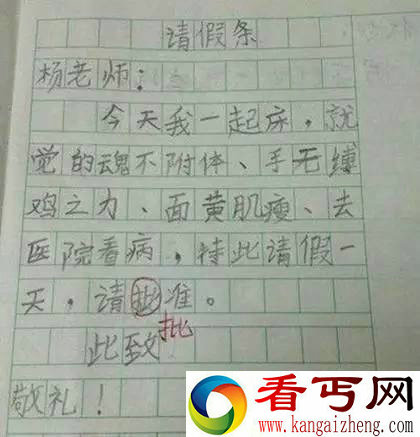 请假条
杨老师：
今天我一起床，就
觉的魂不附体、手无缚
鸡之力、面黄肌瘦、去
医院看病，特此请假一
天，请批准。
批
此致
敬礼！
看丐网
www.kangaizheng.com